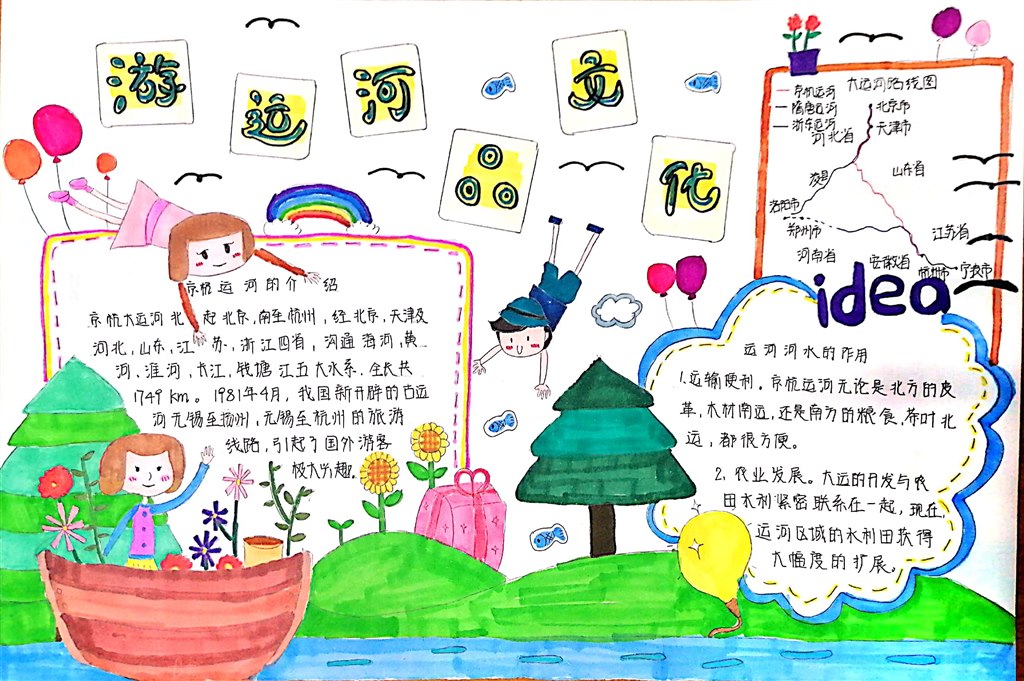 游运河品文化
京杭运河的介绍
京杭大运河北起北京,南至杭州,经北京,天津及
河北,山东,江苏,浙江四省,沟通海河,黄
河、淮河、长江,钱塘江五大水系.全长共
1749 km。1981年4月,我国新开辟的古运
河无锡至扬州,无锡至杭州的旅游
线路,引起了国外游客
极大兴趣。
大运河路线图
京杭运河
隋唐运河
浙东运河
北京市
天津市
河北省
山东省
浚县
洛阳市
郑州市
河南省
江苏省
安徽省
杭州市
宁波市
idea
运河河水的作用
1.运输便利。京杭运河无论是北方的皮
革,木材南运,还是南方的粮食,茶叶北
运,都很方便。
2、农业发展。大运的开发与农
田水利紧密联系在一起,现在,
运河区域的水利田获得
大幅度的扩展。